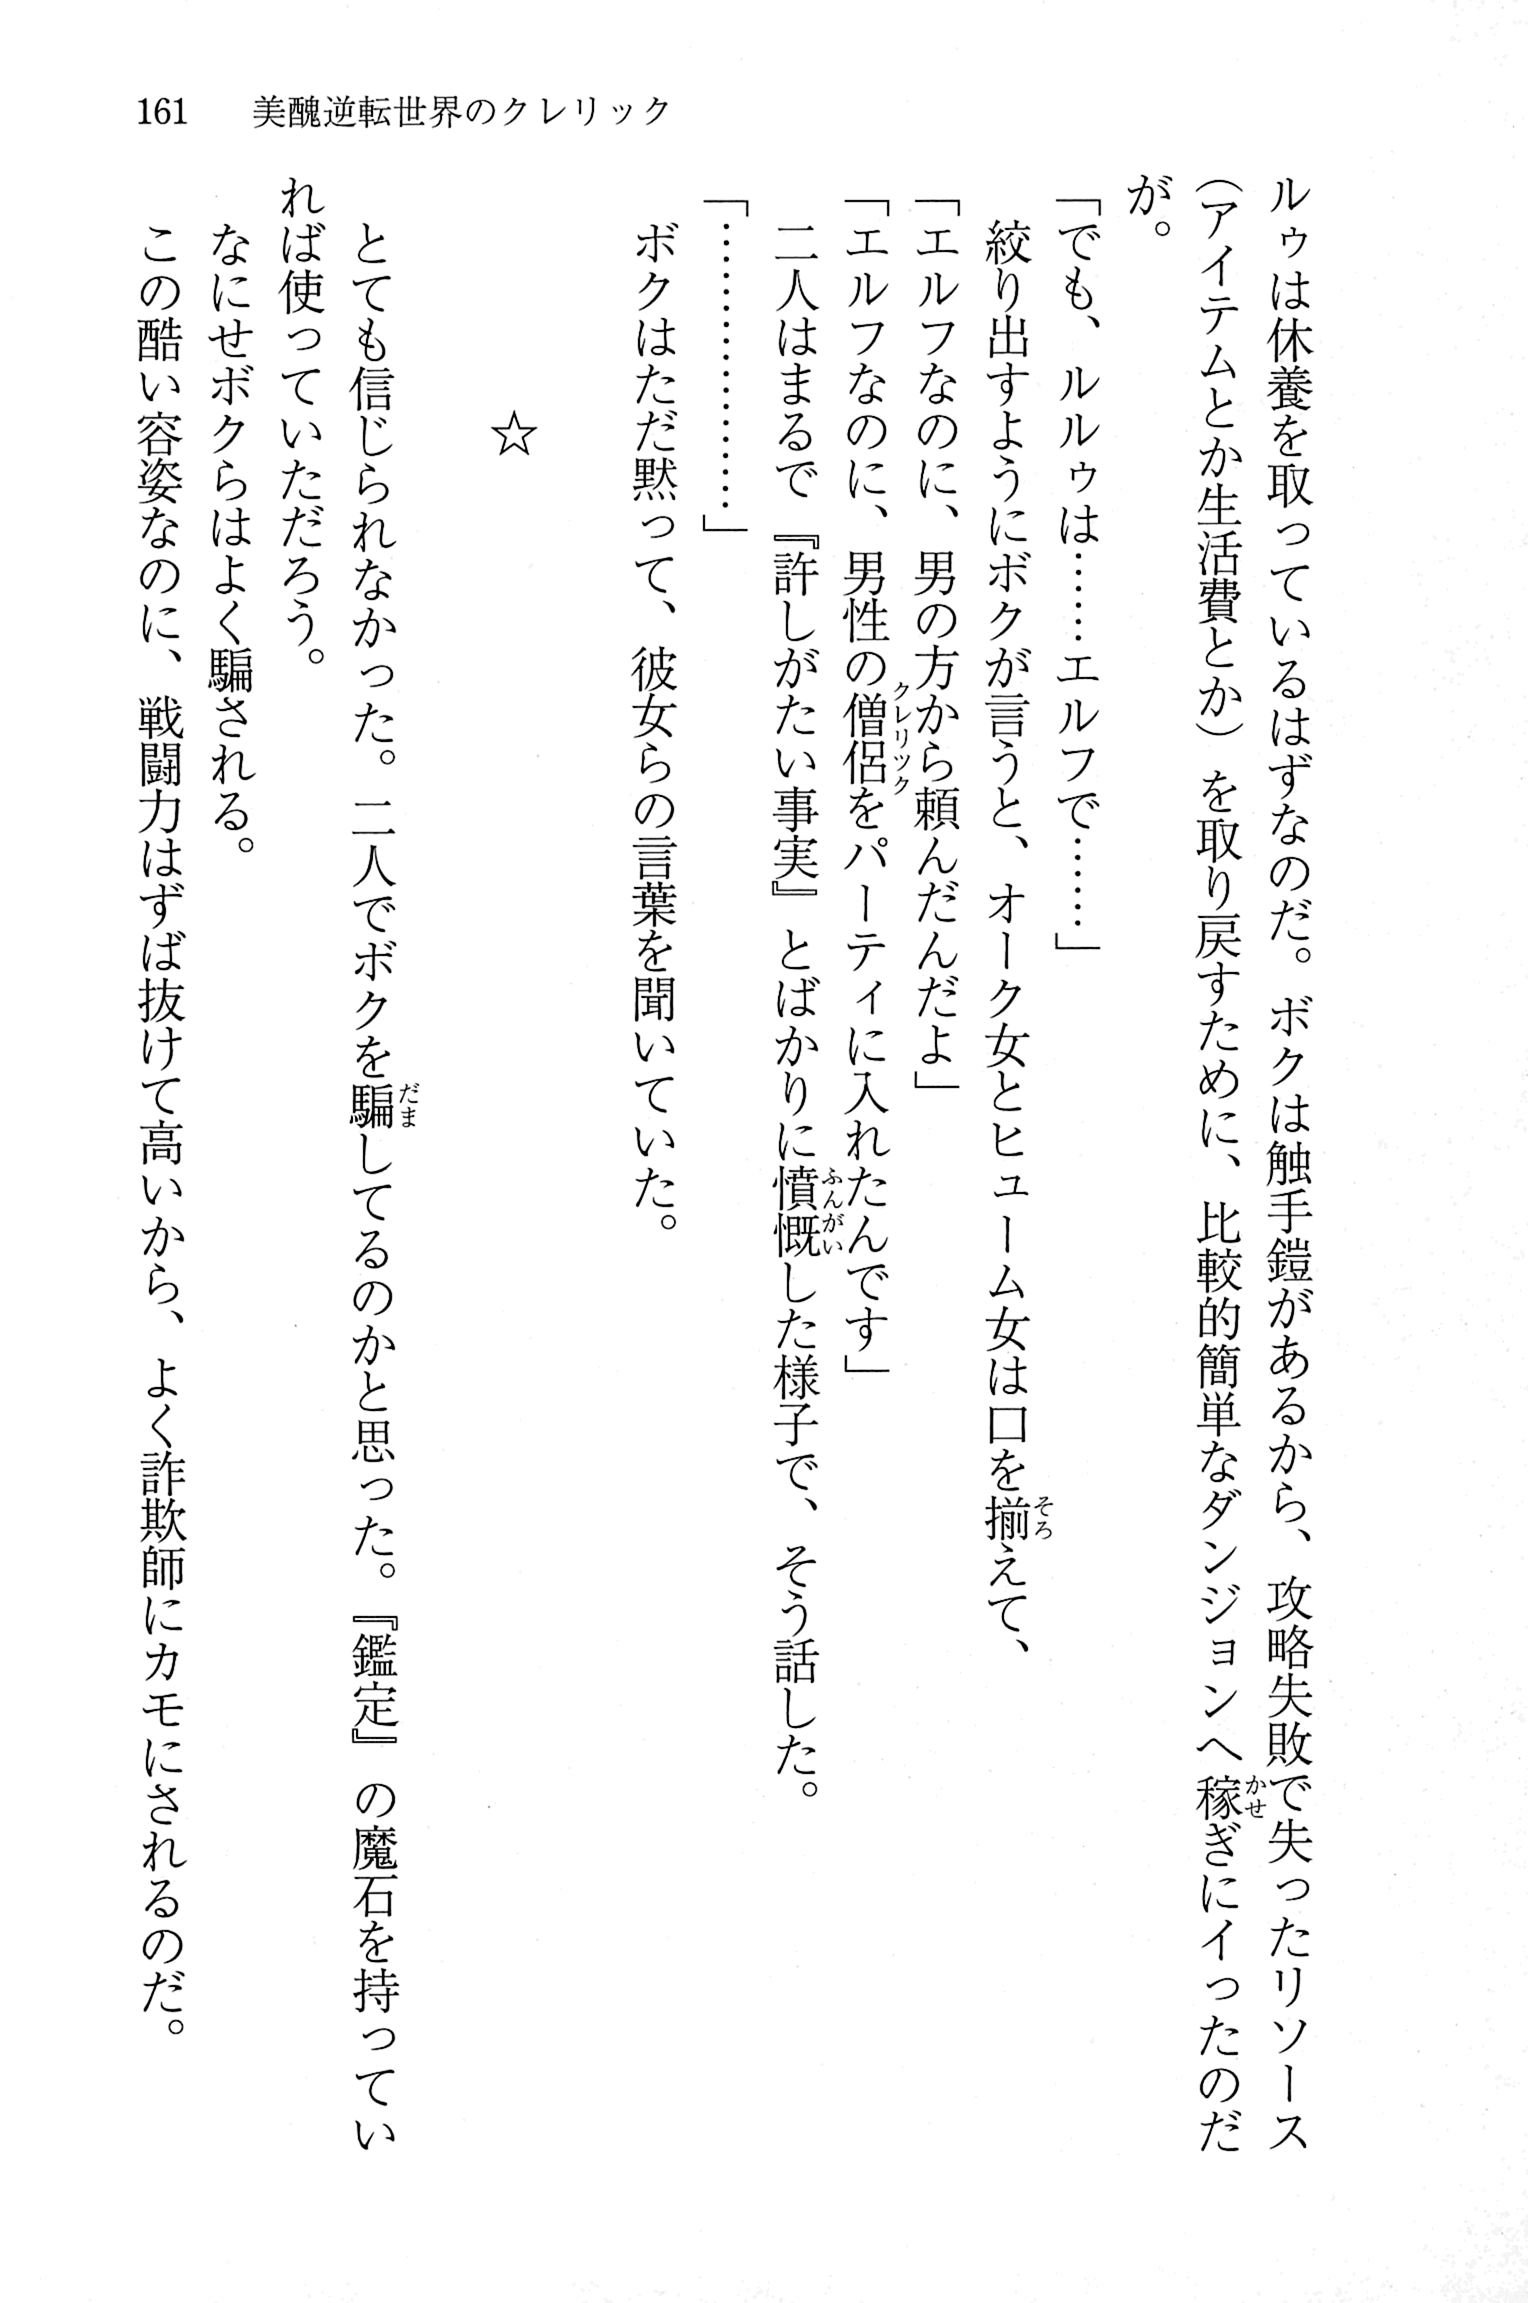 161　美醜逆転世界のクレリック
ルゥは休養を取っているはずなのだ。ボクは触手鎧があるから、攻略失敗で失ったリソース
（アイテムとか生活費とか）を取り戻すために、比較的簡単なダンジョンへ稼ぎにイったのだ
が。
「でも、ルルゥは………エルフで………」
絞り出すようにボクが言うと、オーク女とヒューム女は口を揃えて、
「エルフなのに、男の方から頼んだんだよ」
「エルフなのに、男性の僧侶をパーティに入れたんです」
二人はまるで『許しがたい事実』とばかりに憤慨した様子で、そう話した。
「…………………」
ボクはただ黙って、彼女らの言葉を聞いていた。
☆
とても信じられなかった。二人でボクを騙してるのかと思った。『鑑定』の魔石を持ってい
れば使っていただろう。
なにせボクらはよく騙される。
この酷い容姿なのに、戦闘力はずば抜けて高いから、よく詐欺師にカモにされるのだ。